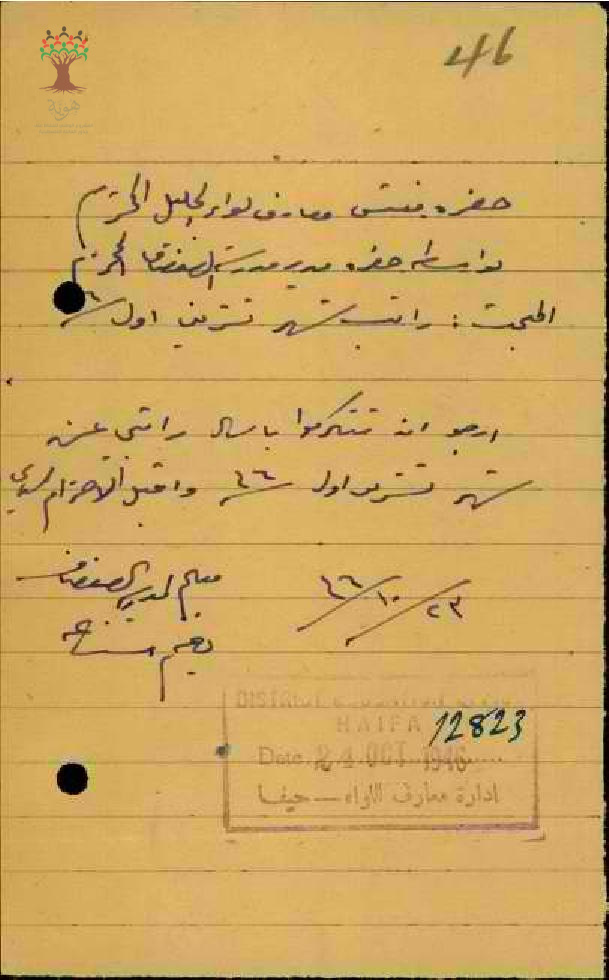 46
هوية
حضرة مفتش معارف لواء الجليل المحترم
بواسطة حضرة مدير مدرسة الصفصاف المحترم
المبحث : راتب شهر تشرين اول ٤٦
ارجو ان تتكرموا بارسال راتبي عن
شهر تشرين اول ٤٦ واقبل الاحترام سيدي
معلم مدرسة الصفصاف
٢٣/١٠/٤٦
نعيم
DISTRICT EDUCATION OFFICE
HAIFA
12823
Date 24 OCT 1946
ادارة معارف اللواء — حيفا